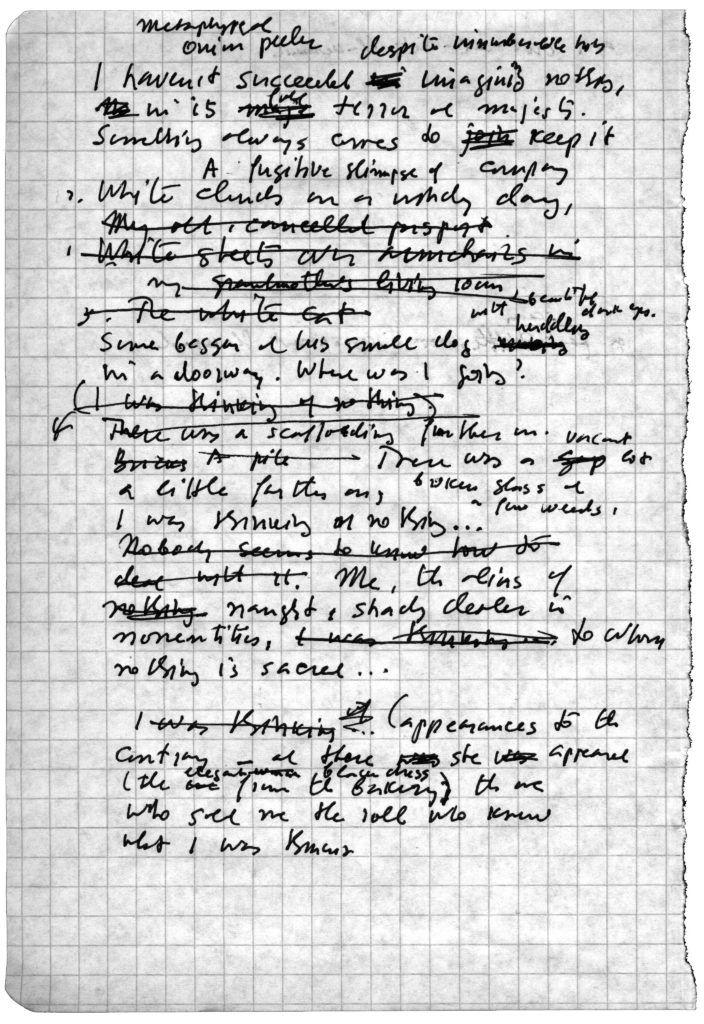 metaphysical
onion peeler despite innumerable tries
I haven't succeeded in imagining nothing,
in its full terror and majesty.
Something always comes to join keep it
A fugitive glimpse of company
2. White clouds on a windy day,
My old, cancelled passport
1. White sheets over armchairs in
my grandmother's living room
3. The white cat
with beautiful dark eyes.
Some beggar and his small dog huddling
in a doorway. Where was I going?
(I was thinking of nothing)
There was a scaffolding further on. vacant
Bricks A pile There was a gap lot
a little farther on, broken glass and
a few weeds,
I was thinking of nothing...
Nobody seems to know how to
deal with it. Me, the alias of
nothing naught, shady dealer in
nonentities, I was thinking to whom
nothing is sacred...
I was thinking of... (appearances to the
contrary – and there she appeared
elegant woman black dress
(the one from the bakery) the one
who sold me the roll who knew
what I was thinking